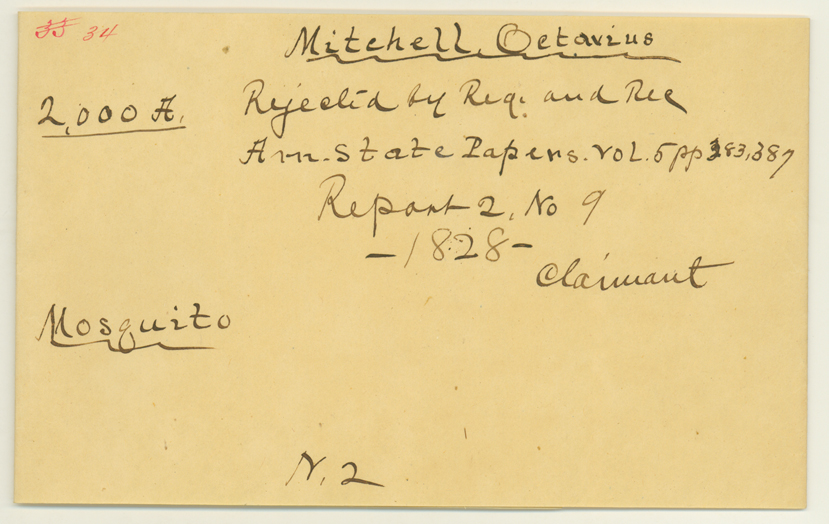 33 34
Mitchell, Octavius
2,000 A. Rejected by Reg. and Rec
Am. State Papers. Vol. 5 pp 383, 387
Report 2, No 9
- 1828 -
Claimant
Mosquito
N. 2